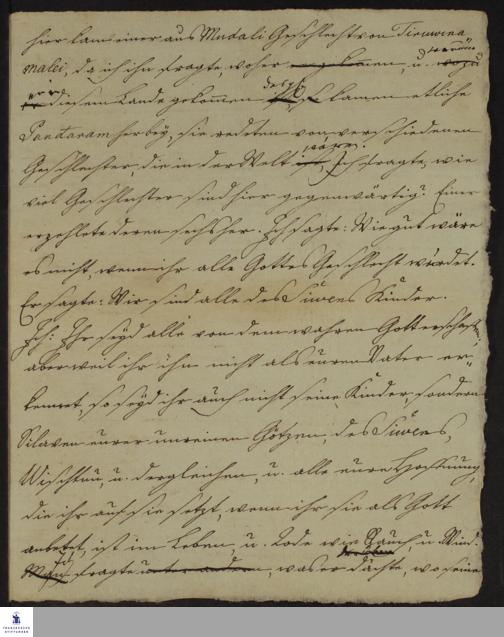 hier kam einer aus Mudali Geschlecht von Tiruwina
malei, da ich ihn fragte, woher kommen, u. warum
er diesem Lande gekommen kamen etliche
Pandaram herbey, sie redeten von verschiedenen
Geschlechter, die in der Welt waren. Ich fragte, wie
viel Geschlechter sind hier gegenwärtig? Einer
erzehlete deren sechs her. Ich sagte: Wie gut wäre
es nicht, wenn ihr alle Gottes Geschlecht würdet.
Er sagte: Wir sind alle des Siwens Kinder.
Ich: Ihr seyd alle von dem wahren Gott erschaffen,
aber weil ihr ihn nicht als euren Vater er-
kennet, so seyd ihr auch nicht seine Kinder, sondern
Sclaven eurer unreinen Götzen des Siwens,
Wischtnu, u. dergleichen, u. alle eure Hoffnung,
die ihr auf sie setzt, wenn ihr sie als Gott
anbetet, ist im Leben, u. Tode wie Rauch, u. Wind.
Ich fragte unter andern, was er dächte, wo seine
FRANCKESCHE
STIFTUNGEN